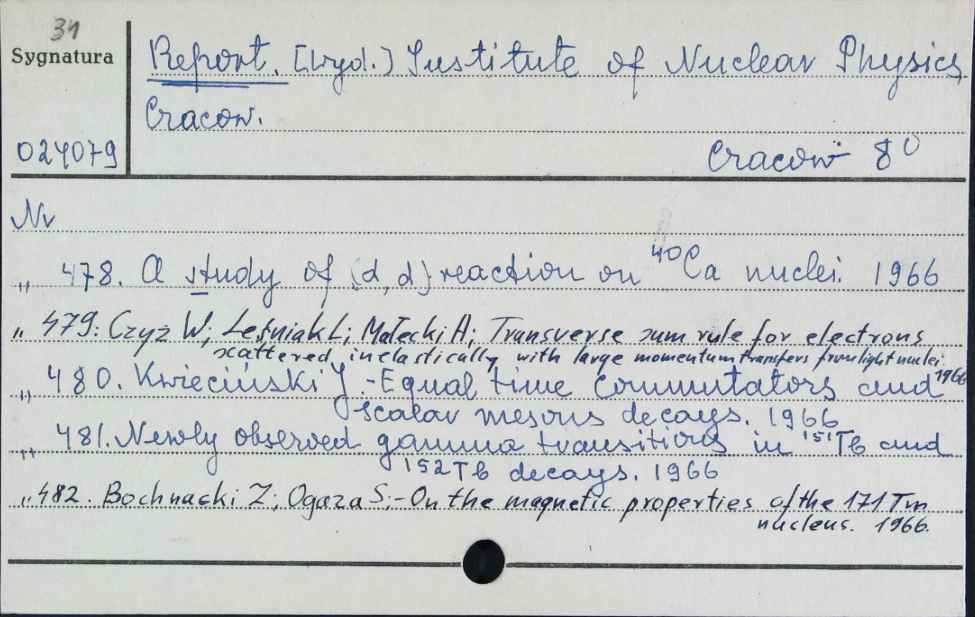 31
Sygnatura
024079
Report. [Wyd.] Institute of Nuclear Physics,
Cracow.
Cracow 8°
Nr
„ 478. A study of (d, d) reaction on ⁴⁰Ca nuclei. 1966
„ 479: Czyż W; Leśniak L; Małecki A; Transverse sum rule for electrons
scattered inelastically with large momentum transfers from light nuclei. 1966
„ 480. Kwieciński J.-Equal time commutators and
scalar mesons decays. 1966
„ 481. Newly observed gamma transitions in ¹⁵¹Tb and
¹⁵²Tb decays. 1966
„ 482. Bochnacki Z; Ogaza S;-On the magnetic properties of the 171 Tm
nucleus. 1966.